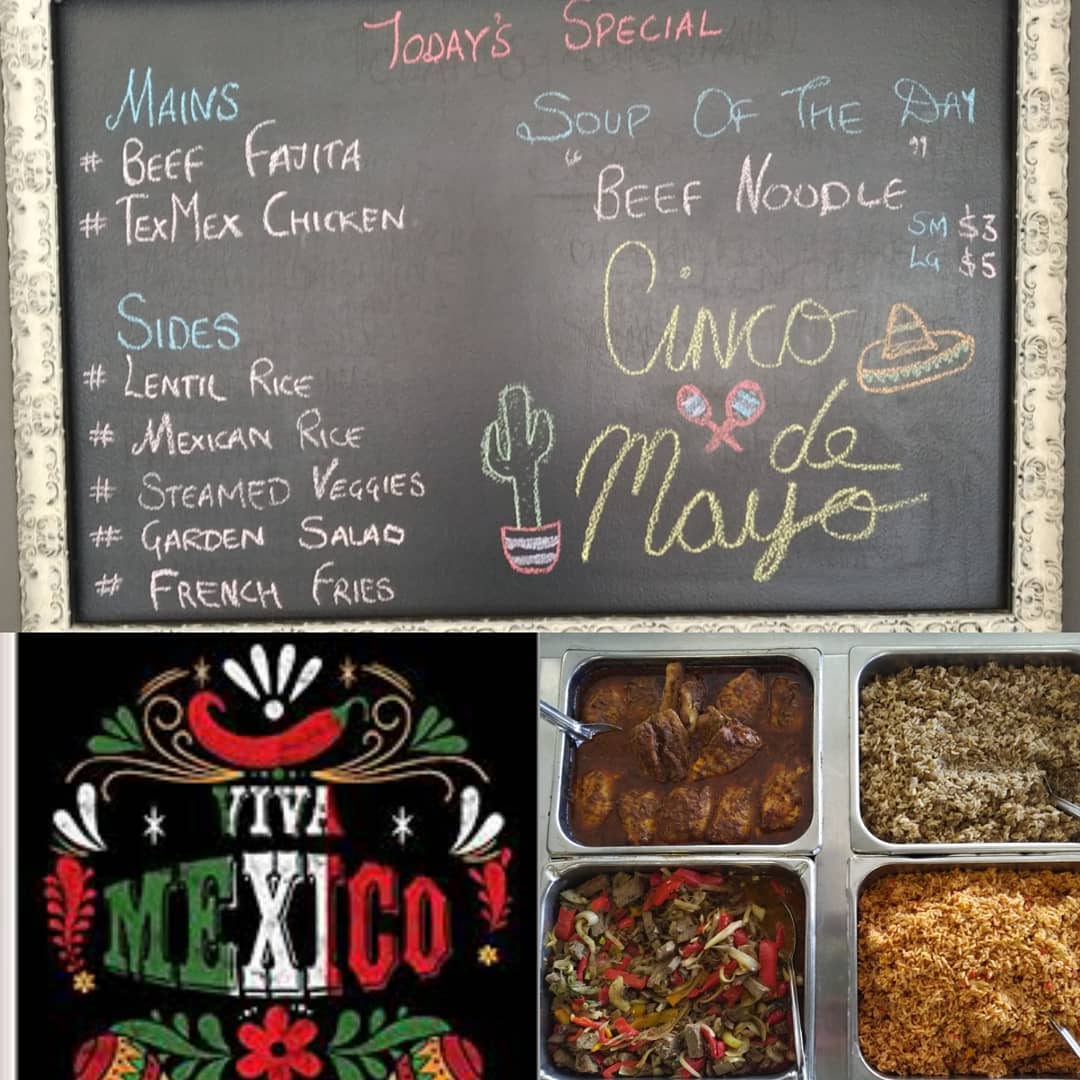 TODAY'S SPECIAL
MAINS
# BEEF FAJITA
# TEXMEX CHICKEN
SIDES
# LENTIL RICE
# MEXICAN RICE
# STEAMED VEGGIES
# GARDEN SALAD
# FRENCH FRIES
SOUP OF THE DAY
"BEEF NOODLE"
SM $3
LG $5
Cinco
de
Mayo
VIVA
MEXICO